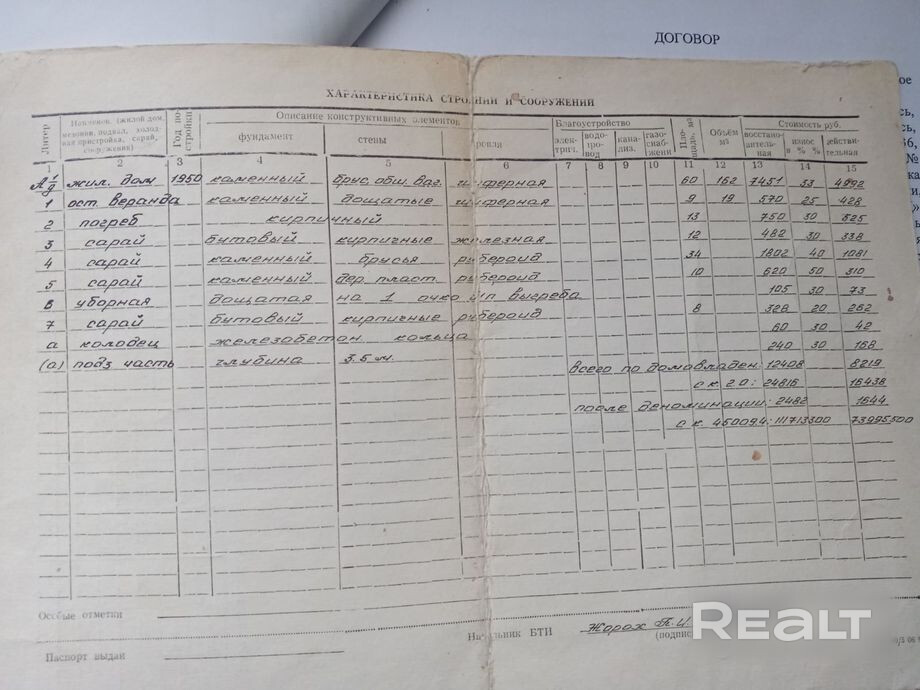 ДОГОВОР
ХАРАКТЕРИСТИКА СТРОЕНИЙ И СООРУЖЕНИЙ
Литер
Наименов. (жилой дом, мезонин, подвал, холодная пристройка, сарай, сооружения)
Год постройки
Описание конструктивных элементов
фундамент стены кровля
Благоустройство
электрич. водопровод канализ. газоснабжени
Площадь, м2
Объём м3
Стоимость руб.
восстановительная износ в % % действительная
1 2 3 4 5 6 7 8 9 10 11 12 13 14 15
А 1/д жил. дом 1950 каменный брус. общ. ваг. шиферная 60 162 7451 33 4992
1 ост. веранда каменный дощатые шиферная 9 19 570 25 428
2 погреб кирпичный 13 750 30 525
3 сарай бутовый кирпичные железная 12 482 30 338
4 сарай каменный брусья рубероид 34 1802 40 1081
5 сарай каменный дер. пласт. рубероид 10 620 50 310
в уборная дощатая на 1 очко й/п выгреба 105 30 73
7 сарай бутовый кирпичные рубероид 8 328 20 262
а колодец железобетон. кольца 60 30 42
(а) подз часть глубина 3.5 м. 240 30 168
всего по домовладен: 12408 8219
с к. 2.0: 24816 16438
после деноминации: 2482 1644
с к. 45009.4: 111713300 73995500
Особые отметки
Паспорт выдан
Начальник БТИ Жорох П.И.
(подпис
REALT